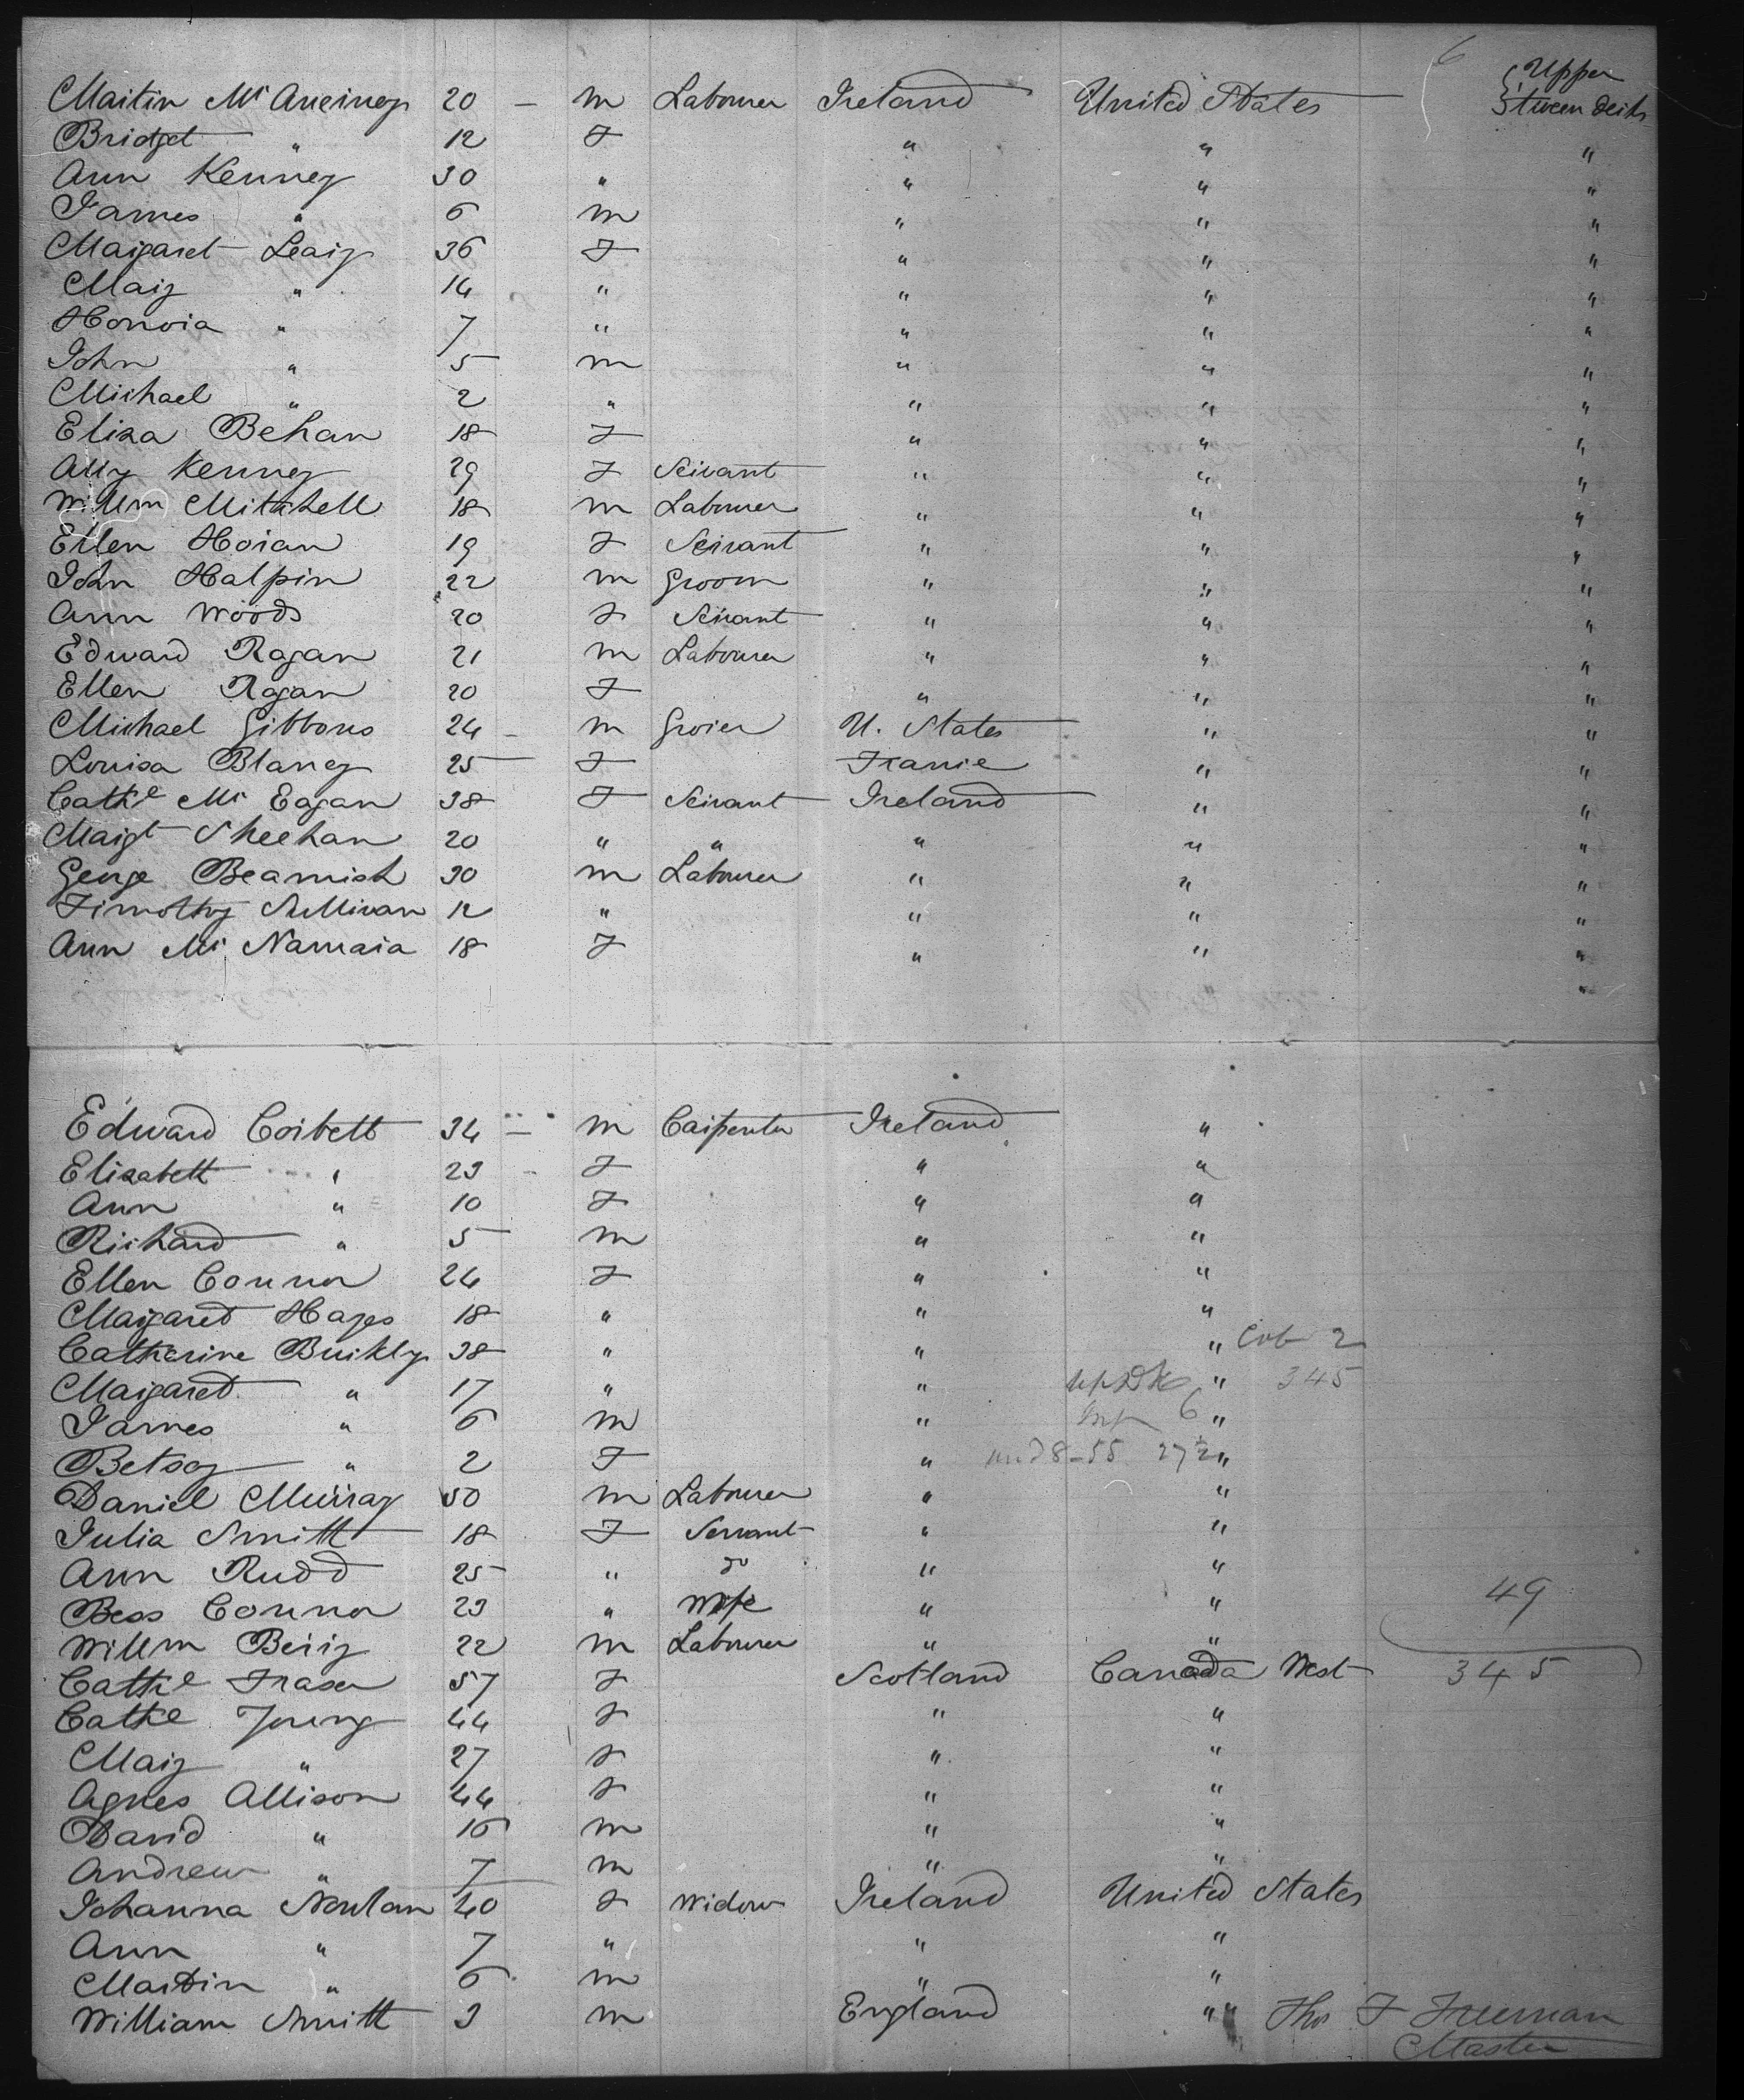 6 { Upper
Martin Mc Aneiney 20 — m Labourer Ireland United States 'tween decks
Bridget " 12 F " " "
Ann Kenney 30 " " " "
James " 6 m " " "
Margaret Leary 36 F " " "
Mary " 14 " " " "
Honora " 7 " " " "
John " 5 m " " "
Michael " 2 " " " "
Eliza Behan 18 F " " "
Ally Kenney 29 F Servant " " "
Willm Mitchell 18 m Labourer " " "
Ellen Horan 19 F Servant " " "
John Halpin 22 m Groom " " "
Ann Woods 20 F Servant " " "
Edward Ragan 21 m Labourer " " "
Ellen Ragan 20 F " " "
Michael Gibbons 24 — m Grocer U. States " "
Louisa Blaney 25 — F France " "
Cathe Mc Eagan 38 F Servant Ireland " "
Margt Sheehan 20 " " " " "
George Beamish 30 m Labourer " " "
Timothy Sullivan 12 " " " "
Ann Mc Namara 18 F " " "
"
Edward Corbett 34 — m Carpenter Ireland "
Elizabeth " 23 - F " "
Ann " 10 F " "
Richard " 5 m " "
Ellen Connor 24 F " "
Margaret Hayes 18 " " "
Catherine Buckly 38 " " " Cob 2
Margaret " 17 " " upDk " 345
James " 6 m " Inf 6 "
Betsey " 2 F " 27½ "
Daniel Murray 50 m Labourer " "
Julia Smith 18 F Servant " "
Ann Rudd 25 " Do " "
Bess Connor 23 " Wife " " 49
Willm Berry 22 m Labourer " "
Cathe Fraser 57 F Scotland Canada West 345
Cathe Young 44 F " "
Mary " 27 F " "
Agnes Allison 44 F " "
David " 16 m " "
Andrew " 7 m " "
Johanna Nowlan 40 F Widow Ireland United States
Ann " 7 " " "
Martin " 6 m " "
William Smith 3 m England " " Thos F Freeman
Master